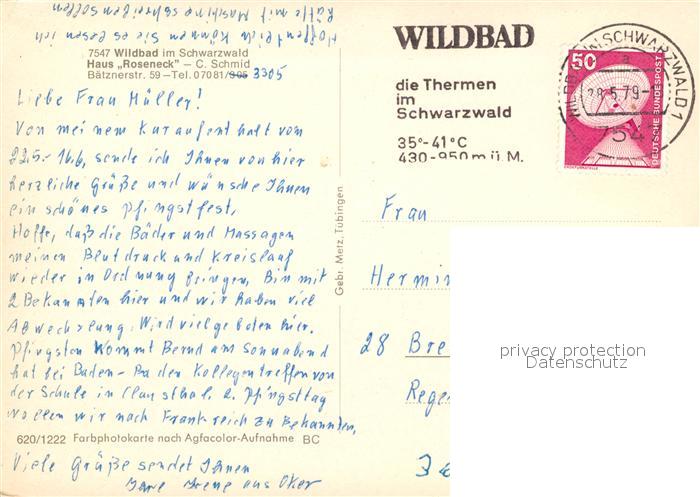 Hoffentlich können Sie es lesen ich
hätte mit Maschine schreiben sollen
7547 Wildbad im Schwarzwald
Haus „Roseneck" – C. Schmid
Bätznerstr. 59 – Tel. 07081/305 3305
Liebe Frau Müller!
Von meinem Kuraufenthalt vom
22.5.-16.6, sende ich Ihnen von hier
herzliche Grüße und wünsche Ihnen
ein schönes Pfingstfest.
Hoffe, daß die Bäder und Massagen
meinen Blutdruck und Kreislauf
wieder in Ordnung bringen. Bin mit
2 Bekannten hier und wir haben viel
Abwechslung. Wird viel geboten hier.
Pfingsten kommt Bernd am Sonnabend
hat bei Baden-Baden Kollegentreffen von
der Schule in Clausthal. 2. Pfingsttag
wollen wir nach Frankreich zu Bekannten.
620/1222 Farbphotokarte nach Agfacolor-Aufnahme BC
Viele Grüße sendet Ihnen
Ihre Irene aus Oker
Gebr. Metz, Tübingen
WILDBAD
die Thermen
im
Schwarzwald
35°-41°C
430-950 m ü. M.
WILDBAD IM SCHWARZWALD 1
a
28.5.79-
754
50
DEUTSCHE BUNDESPOST
ERDFUNKSTELLE
Frau
Hermin
28 Bre
Rege
privacy protection
Datenschutz